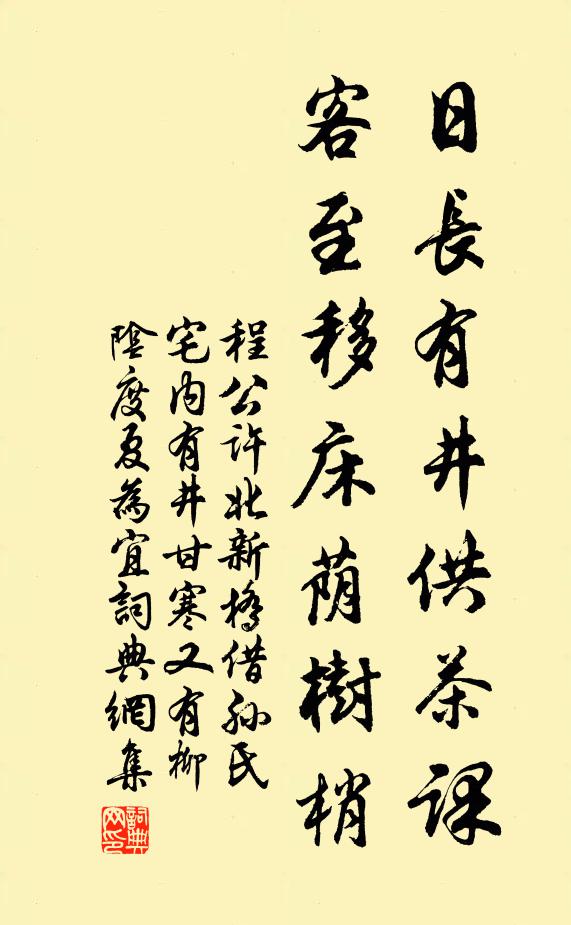 日長有井供茶課
客至移床荫樹梢
程公許北新橋借孫氏
宅内有井甘寒又有柳
陰度夏為宜詞典網集
詞典網印